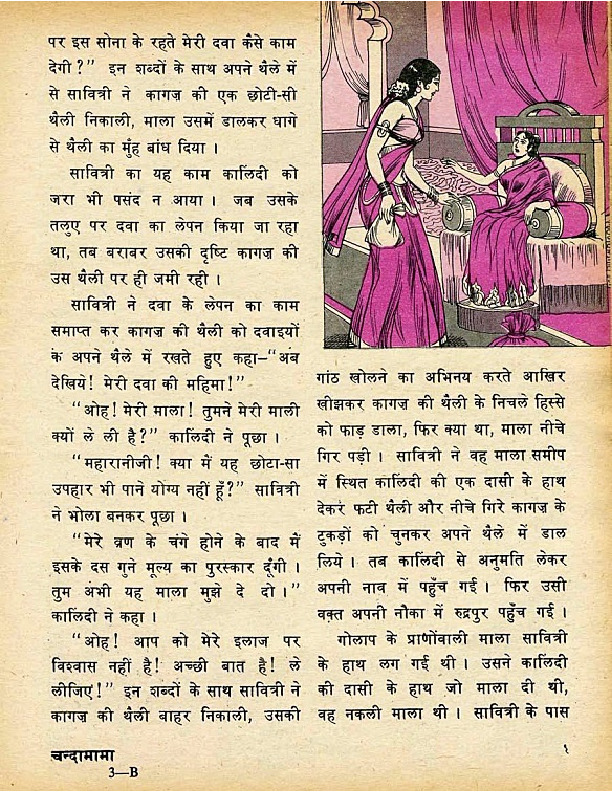 पर इस सोना के रहते मेरी दवा कैसे काम
देगी?” इन शब्दों के साथ अपने थैले में
से सावित्री ने कागज़ की एक छोटी-सी
थैली निकाली, माला उसमें डालकर धागे
से थैली का मुँह बांध दिया।
सावित्री का यह काम कालिंदी को
जरा भी पसंद न आया। जब उसके
तलुए पर दवा का लेपन किया जा रहा
था, तब बराबर उसकी दृष्टि कागज़ की
उस थैली पर ही जमी रही।
सावित्री ने दवा के लेपन का काम
समाप्त कर कागज़ की थैली को दवाइयों
के अपने थैले में रखते हुए कहा–“अब
देखिये! मेरी दवा की महिमा!”
“ओह! मेरी माला! तुमने मेरी माली
क्यों ले ली है?” कालिंदी ने पूछा।
“महारानीजी! क्या मैं यह छोटा-सा
उपहार भी पाने योग्य नहीं हूँ?” सावित्री
ने भोला बनकर पूछा।
“मेरे व्रण के चंगे होने के बाद मैं
इसके दस गुने मूल्य का पुरस्कार दूँगी।
तुम अभी यह माला मुझे दे दो।”
कालिंदी ने कहा।
“ओह! आप को मेरे इलाज पर
विश्वास नहीं है! अच्छी बात है! ले
लीजिए!” इन शब्दों के साथ सावित्री ने
कागज़ की थैली बाहर निकाली, उसकी
गांठ खोलने का अभिनय करते आखिर
खीझकर कागज़ की थैली के निचले हिस्से
को फाड़ डाला, फिर क्या था, माला नीचे
गिर पड़ी। सावित्री ने वह माला समीप
में स्थित कालिंदी की एक दासी के हाथ
देकर फटी थैली और नीचे गिरे कागज़ के
टुकड़ों को चुनकर अपने थैले में डाल
लिये। तब कालिंदी से अनुमति लेकर
अपनी नाव में पहुँच गई। फिर उसी
वक़्त अपनी नौका में रुद्रपुर पहुँच गई।
गोलाप के प्राणोंवाली माला सावित्री
के हाथ लग गई थी। उसने कालिंदी
की दासी के हाथ जो माला दी थी,
वह नकली माला थी। सावित्री के पास
चन्दामामा
3—B